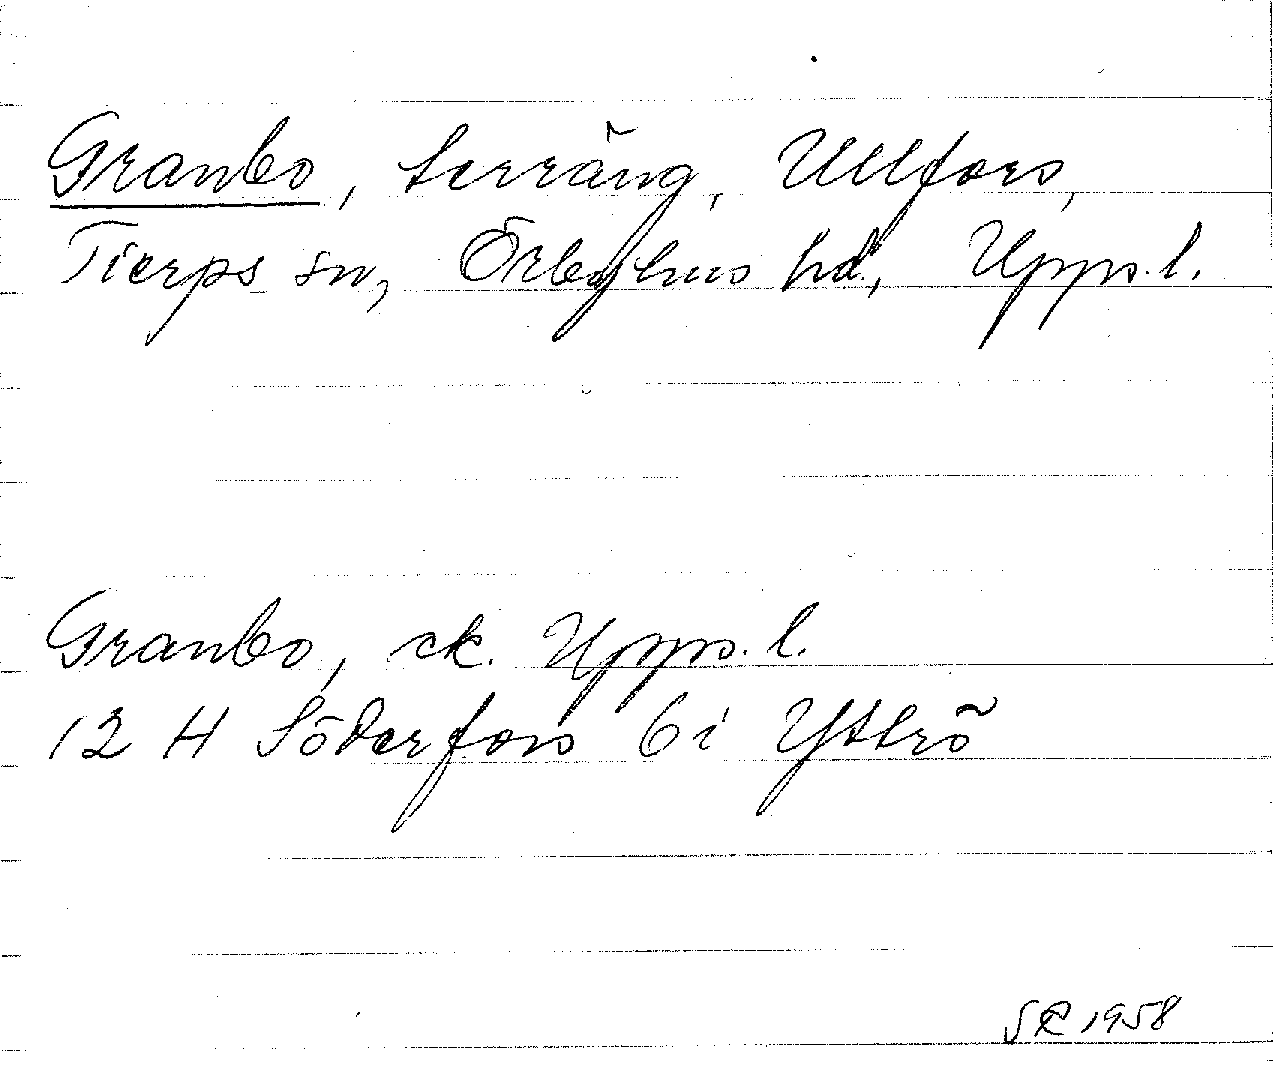 Granbo, terräng, Ullfors,
Tierps sn, Örbyhus hd., Upps. l.
Granbo, ek. Upps. l.
12 H Söderfors 6 i Yttrö
SR 1958